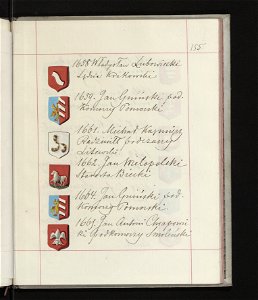 155
1658 Władysław Lubowiecki
Sędzia Krakowski
1659. Jan Gniński pod-
komorzy Pomorski
1661. Michał Kazimierz
Radziwiłł podczaszy
Litewski
1662. Jan Wielopolski
Starosta Biecki
1664. Jan Gniński pod-
komorzy Pomorski
1667. Jan Antoni Chrapowi-
cki Podkomorzy Smoleński